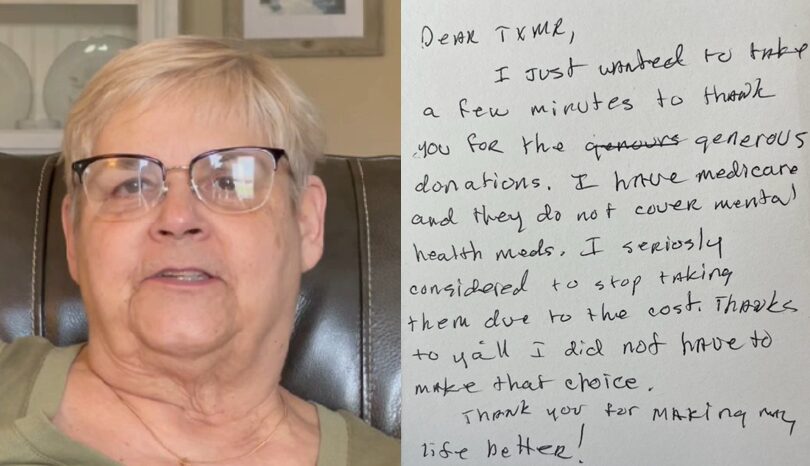 Dear TXMR,
I just wanted to take
a few minutes to thank
you for the genours generous
donations. I have medicare
and they do not cover mental
health meds. I seriosly
considered to stop taking
them due to the cost. Thanks
to ya'll I did not have to
make that choice.
Thank you for making my
life better!